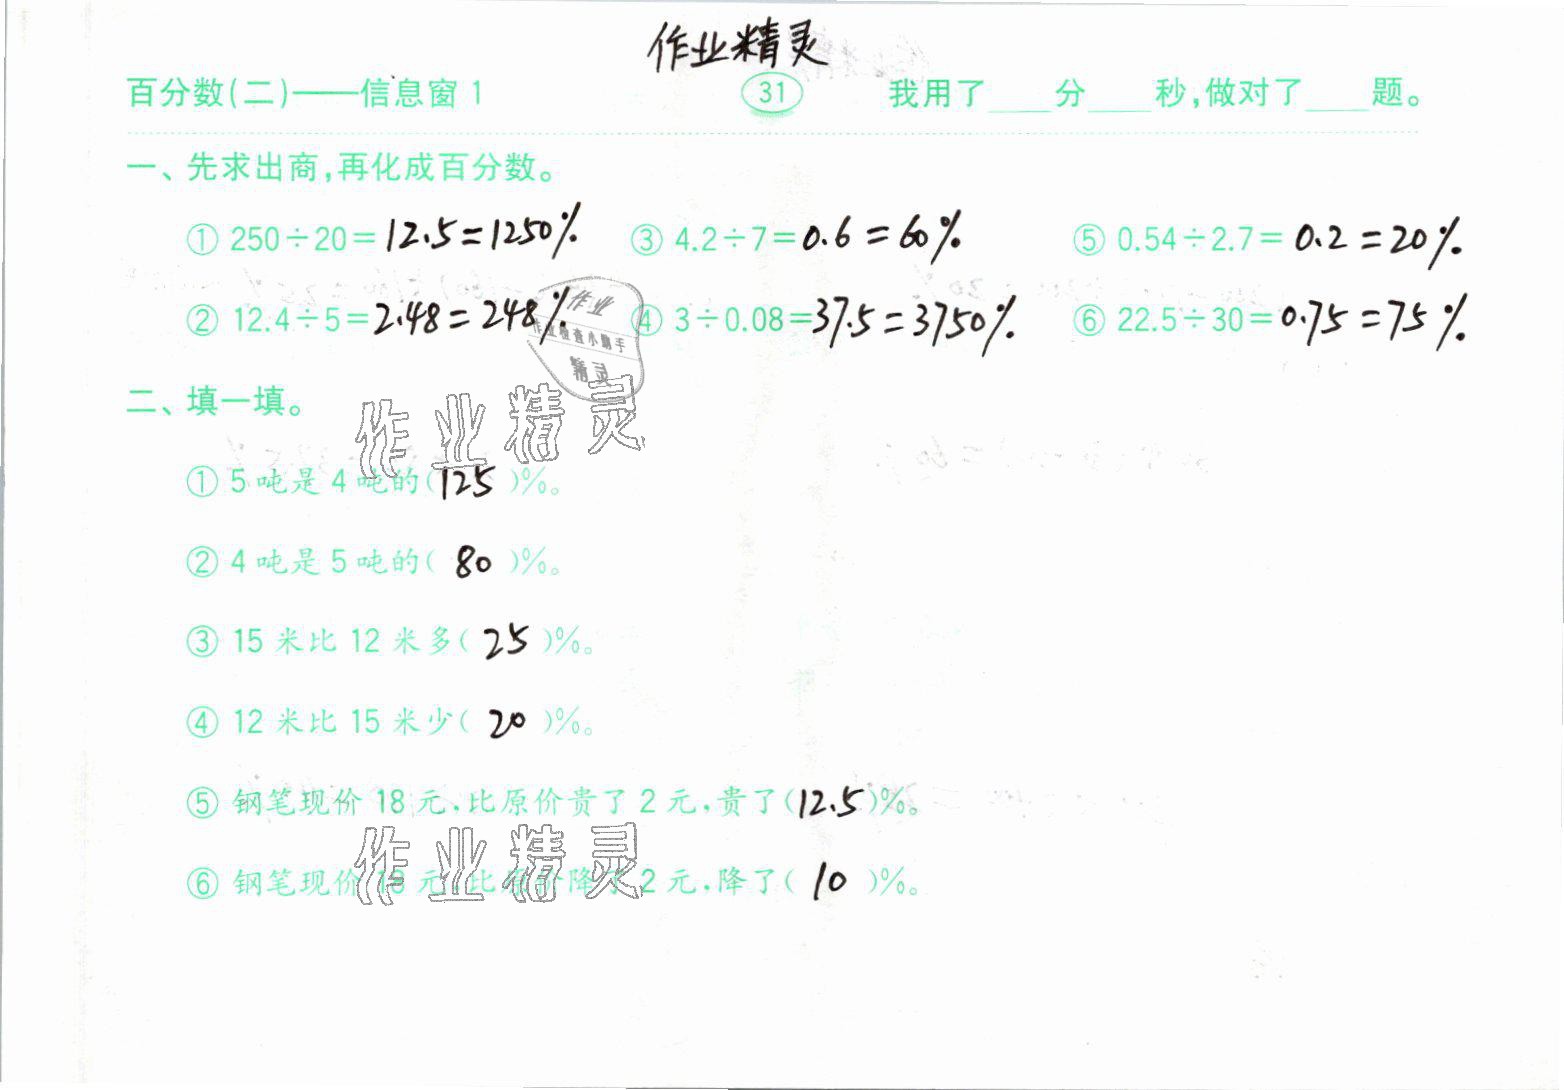 作业精灵
百分数(二)——信息窗1 31 我用了____分____秒,做对了____题。
一、先求出商,再化成百分数。
① 250÷20=12.5=1250% ③ 4.2÷7=0.6=60% ⑤ 0.54÷2.7=0.2=20%
② 12.4÷5=2.48=248% ④ 3÷0.08=37.5=3750% ⑥ 22.5÷30=0.75=75%
作业
作业检查小助手
精灵
二、填一填。
作业精灵
① 5吨是4吨的(125)%。
② 4吨是5吨的(80)%。
③ 15米比12米多(25)%。
④ 12米比15米少(20)%。
⑤ 钢笔现价18元,比原价贵了2元,贵了(12.5)%。
作业精灵
⑥ 钢笔现价18元,比原价降了2元,降了(10)%。